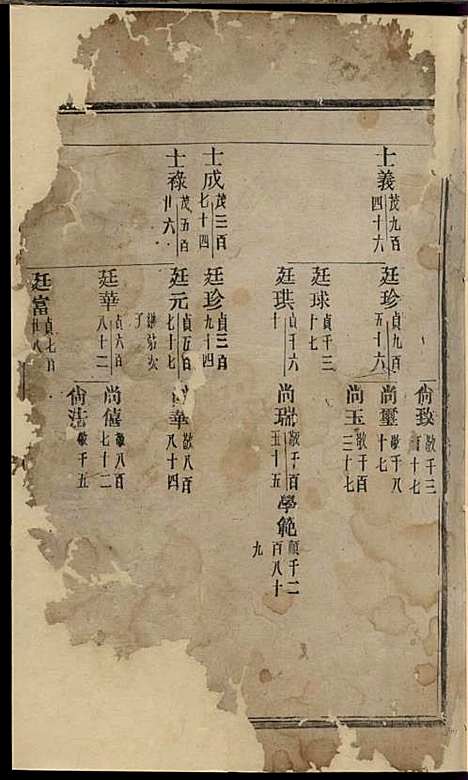 士義茂九百四十六
士成茂三百七十四
士祿茂五百廿六
廷珍貞九百五十六
廷球貞千三十七
廷珙貞千六十
廷珍貞三百九十四
廷元貞五百七十七
廷華貞六百八十二
廷富貞七百
尚致敬千三百十七
尚璽敬千八十七
尚玉敬千百三十七
尚瑞敬千百五十五
華敬八百八十四
尚僖敬八百七十二
尚法敬千五
學範顯千二百八十九